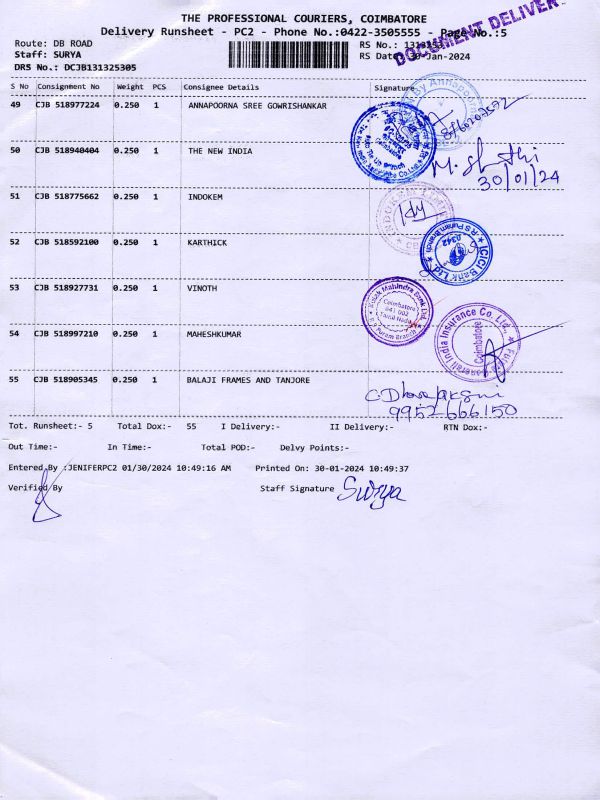 THE PROFESSIONAL COURIERS, COIMBATORE
Delivery Runsheet - PC2 - Phone No.:0422-3505555 - Page No.:5
DOCUMENT DELIVER
Route: DB ROAD
Staff: SURYA
DRS No.: DCJB131325305
RS No.:
RS Date: 30-Jan-2024
S No Consignment No Weight PCS Consignee Details Signature
49 CJB 518977224 0.250 1 ANNAPOORNA SREE GOWRISHANKAR
50 CJB 518940404 0.250 1 THE NEW INDIA
30/01/24
51 CJB 518775662 0.250 1 INDOKEM
52 CJB 518592100 0.250 1 KARTHICK
ICICI Bank Ltd. R S Puram Branch
53 CJB 518927731 0.250 1 VINOTH
Kotak Mahindra Bank Ltd.
Coimbatore
641 002
Tamil Nadu
R S Puram Branch
54 CJB 518997210 0.250 1 MAHESHKUMAR
India Insurance Co. Ltd.
Coimbatore
55 CJB 518905345 0.250 1 BALAJI FRAMES AND TANJORE
9952666150
Tot. Runsheet:- 5 Total Dox:- 55 I Delivery:- II Delivery:- RTN Dox:-
Out Time:- In Time:- Total POD:- Delvy Points:-
Entered By :JENIFERPC2 01/30/2024 10:49:16 AM Printed On: 30-01-2024 10:49:37
Verified By Staff Signature Surya